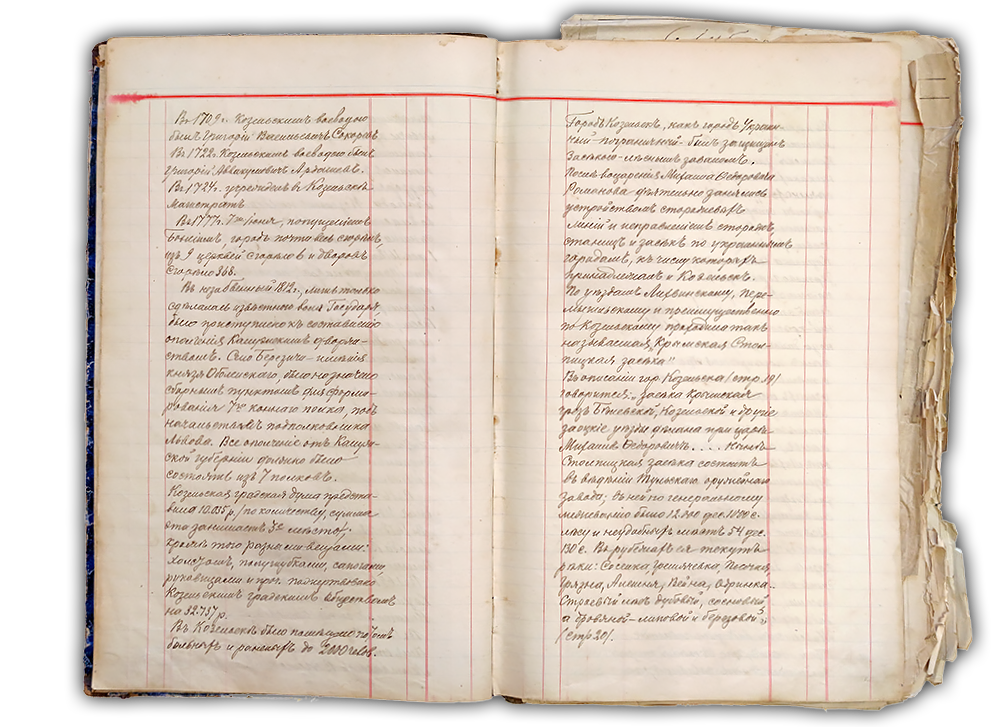 Въ 1709 г. Козельскимъ воеводою
былъ Григорій Васильевичъ Сокоревъ
Въ 1722 г. Козельскимъ воеводою былъ
Григорій Аввакумовичъ
Въ 1724 г. учрежденъ въ г. Козельскѣ
Магистратъ
Въ 1777 г. 7го Іюня, попущеніемъ
Божіимъ, городъ почти весь сгорѣлъ,
изъ 9 церквей сгорѣло и дворовъ
сгорѣло 368.
Въ незабвенный 1812 г., лишь только
сдѣлалась извѣстною воля Государя
было приступлено къ составленію
ополченія Калужскимъ дворян-
ствомъ. Село Березичи - имѣнія
князя Оболенскаго, было назначено
сборнымъ пунктомъ для форми-
рованія 7го коннаго полка, подъ
начальствомъ подполковника
Львова. Все ополченіе отъ Калуж-
ской губерніи должно было
состоять изъ 7 полковъ.
Козельская градская дума предста-
вила 10.035 р. /по количеству, сумма
эта занимаетъ 3е мѣсто/,
кромѣ того разными вещами:
холстомъ, полушубками, сапогами,
рукавицами и проч. пожертвовано
Козельскимъ градскимъ обществомъ
на 32.737 р.
Въ Козельскѣ было помѣщено
больныхъ и раненыхъ до 2000 челов.
Городъ Козельскъ, какъ городъ Украин-
ный - пограничный - былъ защищенъ
Засѣкою - лѣснымъ заваломъ.
Послѣ воцаренія Михаила Ѳедоровича
Романова дѣятельно занялись
устройствомъ сторожевыхъ
линій и исправленіемъ сторожей,
станицъ и засѣкъ по украиннымъ
городамъ, къ числу которыхъ
принадлежалъ и Козельскъ.
По уѣздамъ Лихвинскому, Пере-
мышльскому и преимущественно
по Козельскому проходила такъ
называемая "Крымская Стол-
пицкая засѣка"
Въ описаніи гор. Козельска /стр 19/
говорится: „засѣка Крымская
чрезъ Бѣлевской, Козельской и другіе
заоцкіе уѣзды дѣлана при царѣ
Михаилѣ Ѳедоровичѣ....
Столпицкая засѣка состоитъ
въ вѣдѣніи Тульскаго оружейнаго
завода; въ ней по генеральному
межеванію было 12.000 дес. с.
лѣсу и неудобныхъ мѣстъ 54 дес.
130 с. Въ рубежахъ ея текутъ
рѣки: Сосенка, Песочня,
Грязна,
Строевый лѣсъ дубовый, сосновый,
а дровяной - липовой и березовой"
/стр 20/.